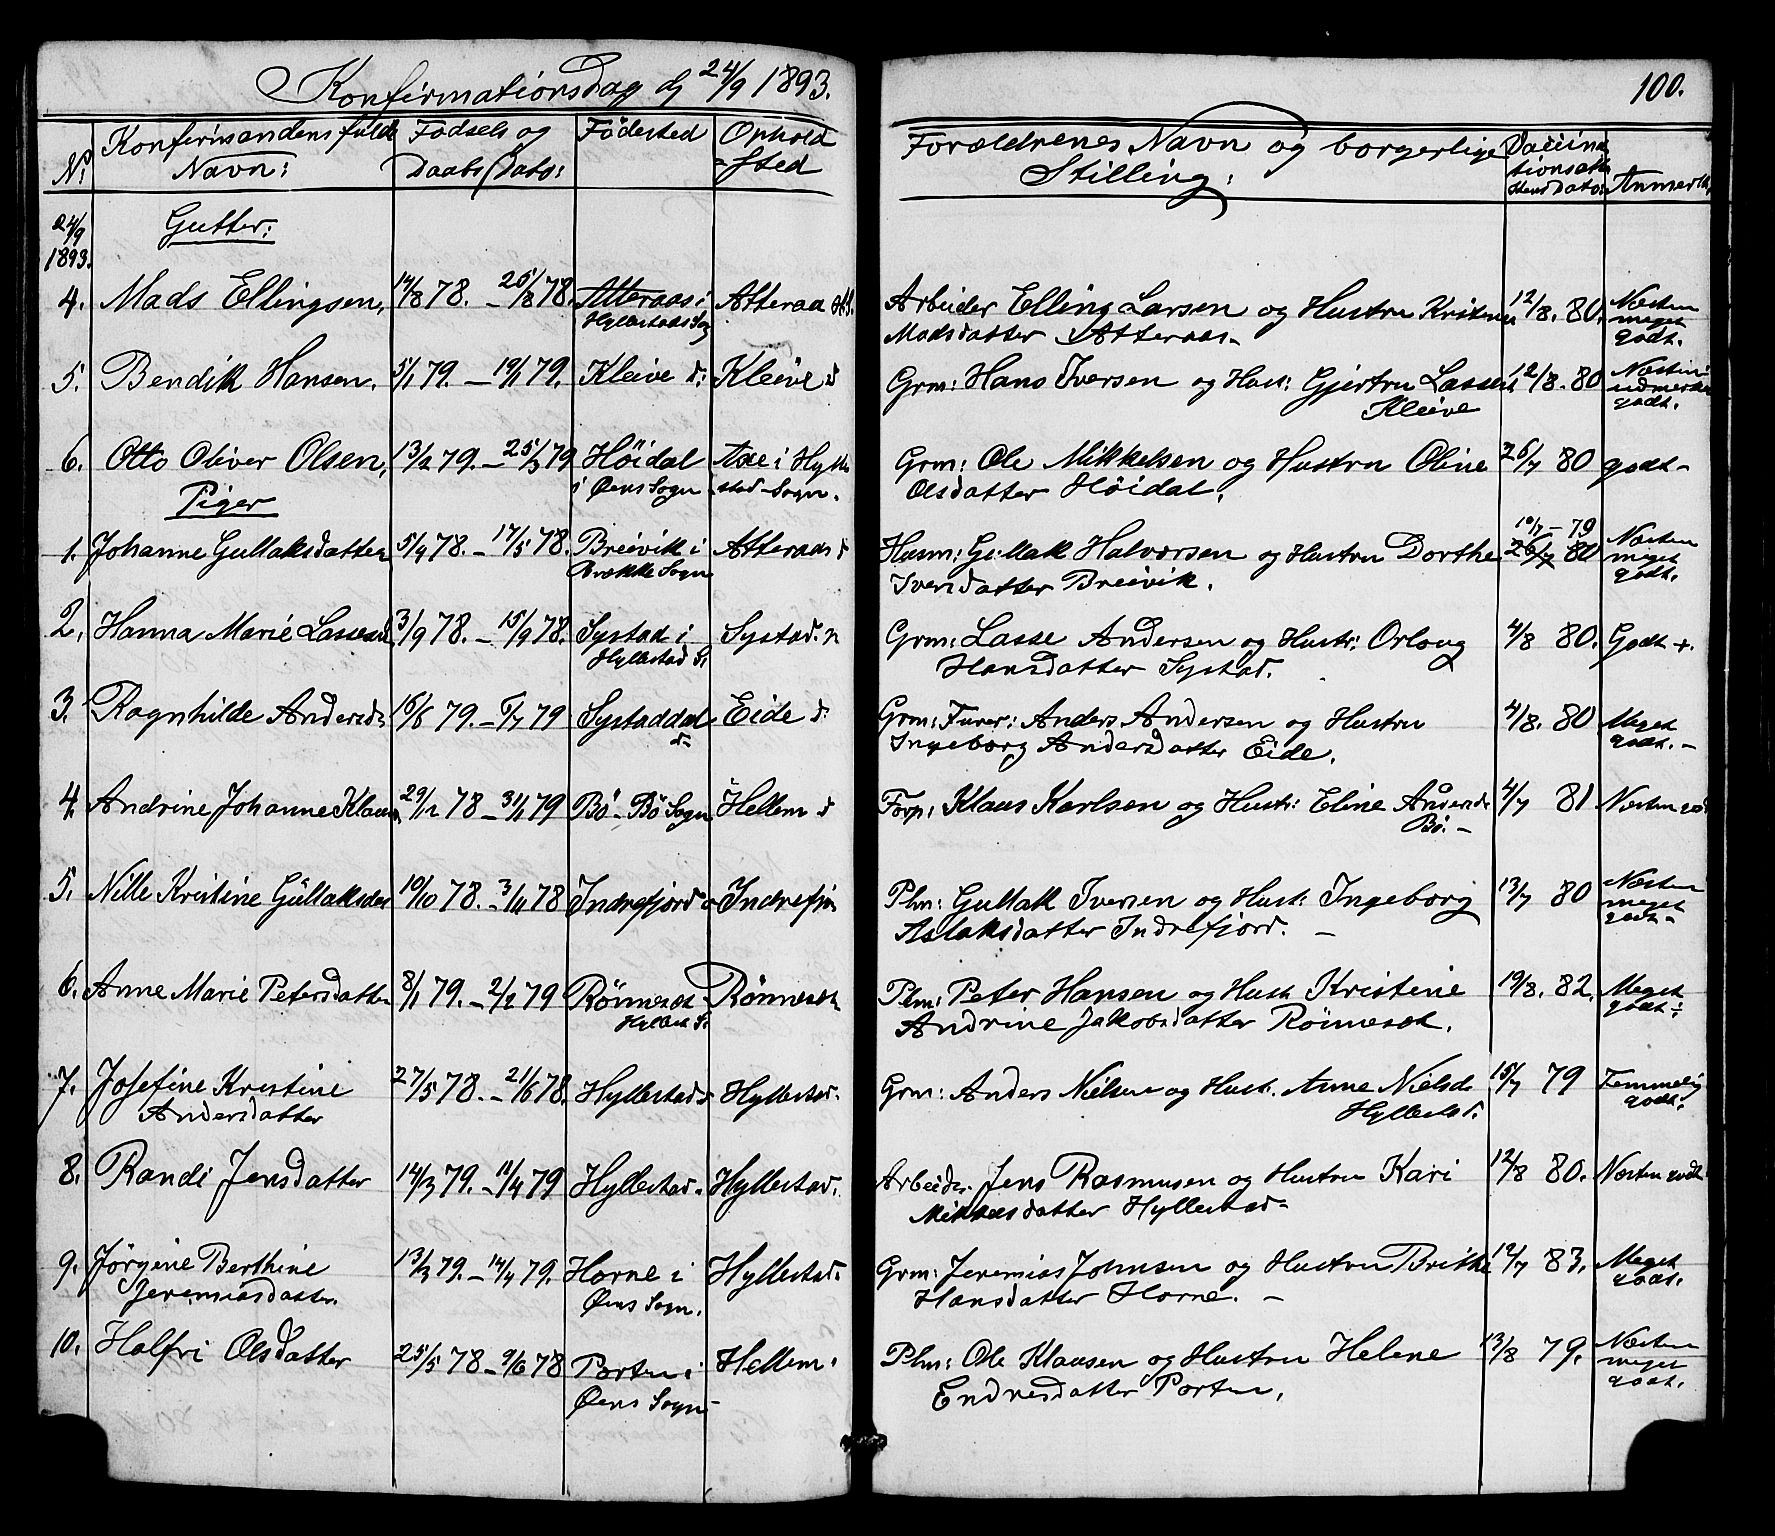 Konfirmationsdag d 24/9 1893.
100.
No: Konfirmandens fulde Navn: Fødsels og Daabs Dato: Födested Ophold Sted
Forældrenes Navn og borgerlige Stilling: Vaccinationsattestens Dato: Anmerk.
24/9 1893. Gutter:
4. Mads Ellingsen, 14/8 78. – 25/8 78. Atteraas i Hyllestads Sog Atteraa
Arbeider Elling Larsen og Hustru Kristense Madsdatter Atteraas – 12/8. 80. Næsten meget godt.
5. Bendik Hansen, 5/1 79. – 19/1 79. Kleive d: Kleive d
Grm: Hans Iversen og Hust: Gjertru Lassesd Kleive 12/8. 80 Næsten udmerket godt.
6. Otto Oliver Olsen, 13/2 79. – 25/3 79 Höidal i Øens Sogn Aae i Hyllestad Sogn.
Grm: Ole Mikkelsen og Hustru Oline Olsdatter Höidal. 26/7 80 godt –
Piger
1. Johanne Gullaksdatter 5/4 78. – 17/5 78. Breivik i Brække Sogn Atteraas d
Husm: Gullak Halvorsen og Hustru Dorthe Iversdatter Breivik. 10/7 – 79 26/7 80 Næsten meget godt.
2. Hanna Marie Lassesd 3/9 78. – 15/9 78. Systad i Hyllestad S: Systad.
Grm: Lasse Andersen og Hustr: Orloug Hansdatter Systad. 4/8 80. Godt +.
3. Ragnhilde Andersd: 16/6 79. – 6/7 79 Systaddal d: Eide d:
Grm: Furer: Anders Andersen og Hustru Ingeborg Andersdatter Eide. 4/8. 80 Meget godt. –
4. Andrine Johanne Klausd 29/12 78 – 31/1 79 Bö – Bö Sogn Hellem d
Forp: Klaus Karlsen og Hustr: Eline Andersd: Bö. – 4/7 81 Næsten godt
5. Nille Kristine Gullaksdat 10/10 78. – 3/11 78 Indrefjord Indrefjor
Plm: Gullak Iversen og Hust: Ingeborg Aslaksdatter Indrefjord. – 13/7 80 Næsten meget godt –
6. Anne Marie Petersdatter 8/1 79. – 2/2 79 Rönneset Hyllest S: Rönneset
Plm: Peter Hansen og Hust Kristine Andrine Jakobsdatter Rönneset. 19/8. 82. Meget godt ÷
7. Josefine Kristine Andersdatter 27/5 78. – 21/6 78. Hyllestad Hyllestad.
Grm: Anders Nielsen og Hust. Anne Nielsd Hyllestd. 15/7 79 Temmelig godt.
8. Randi Jensdatter 14/3 79. – 11/4 79 Hyllestad. Hyllestad.
Arbeider. Jens Rasmusen og Hustru Kari Mikkelsdatter Hyllestad – 12/8 80. Næsten godt
9. Jörgine Berthine Jeremiasdatter. 13/3 79. – 14/4 79. Horne i Øens Sogn. Hyllestad.
Grm: Jeremias Johnsen og Hustru Brithe Hansdatter Horne. – 12/7 83. Meget godt.
10. Halfri Olsdatter 25/5 78 – 9/6 78 Porten i Øens Sogn – Hellem.
Plm: Ole Klausen og Hustru Helene Endresdatter Porten. 13/8 79. Næsten meget godt.